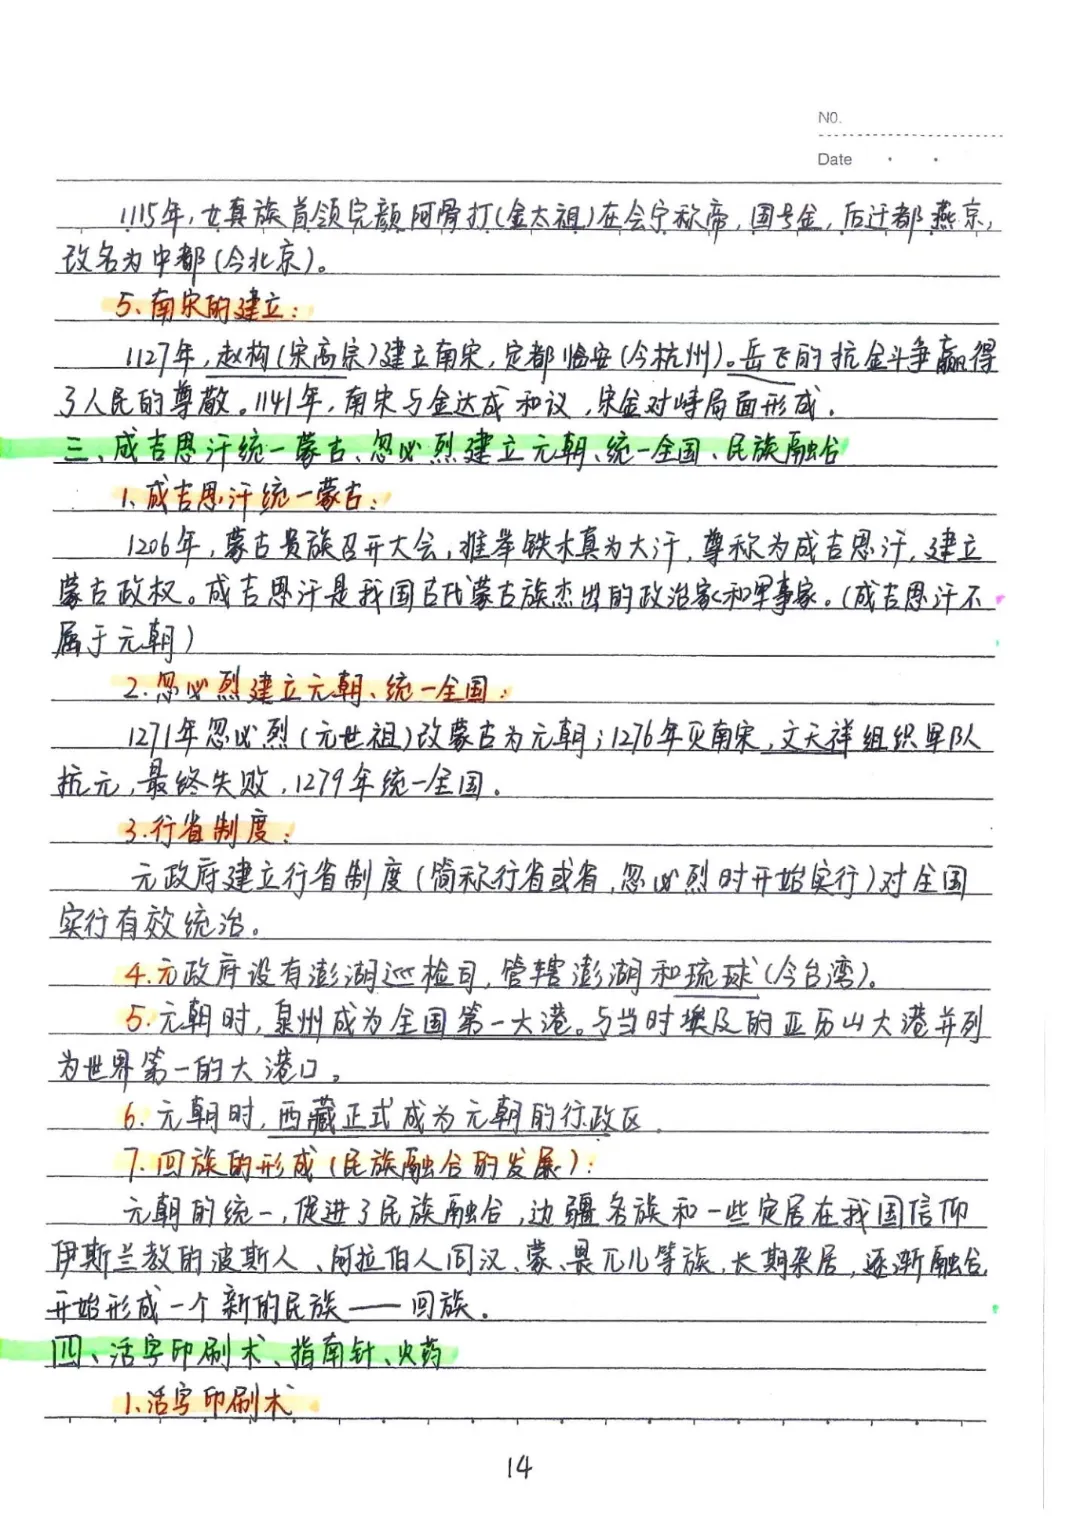 NO.
Date
1115年,女真族首领完颜阿骨打(金太祖)在会宁称帝,国号金,后迁都燕京,
改名为中都(今北京)。
5、南宋的建立:
1127年,赵构(宋高宗)建立南宋,定都临安(今杭州)。岳飞的抗金斗争赢得
了人民的尊敬。1141年,南宋与金达成和议,宋金对峙局面形成.
三、成吉思汗统一蒙古、忽必烈建立元朝、统一全国、民族融合
1、成吉思汗统一蒙古:
1206年,蒙古贵族召开大会,推举铁木真为大汗,尊称为成吉思汗,建立
蒙古政权。成吉思汗是我国古代蒙古族杰出的政治家和军事家。(成吉思汗不
属于元朝)
2.忽必烈建立元朝、统一全国:
1271年忽必烈(元世祖)改蒙古为元朝;1276年灭南宋,文天祥组织军队
抗元,最终失败,1279年统一全国.
3.行省制度:
元政府建立行省制度(简称行省或省,忽必烈时开始实行)对全国
实行有效统治。
4.元政府设有澎湖巡检司,管辖澎湖和琉球(今台湾)。
5.元朝时,泉州成为全国第一大港。与当时埃及的亚历山大港并列
为世界第一的大港口。
6.元朝时,西藏正式成为元朝的行政区.
7.回族的形成(民族融合的发展):
元朝的统一,促进了民族融合,边疆各族和一些定居在我国信仰
伊斯兰教的波斯人、阿拉伯人同汉、蒙、畏兀儿等族,长期杂居,逐渐融合,
开始形成一个新的民族——回族.
四、活字印刷术、指南针、火药
1、活字印刷术
14